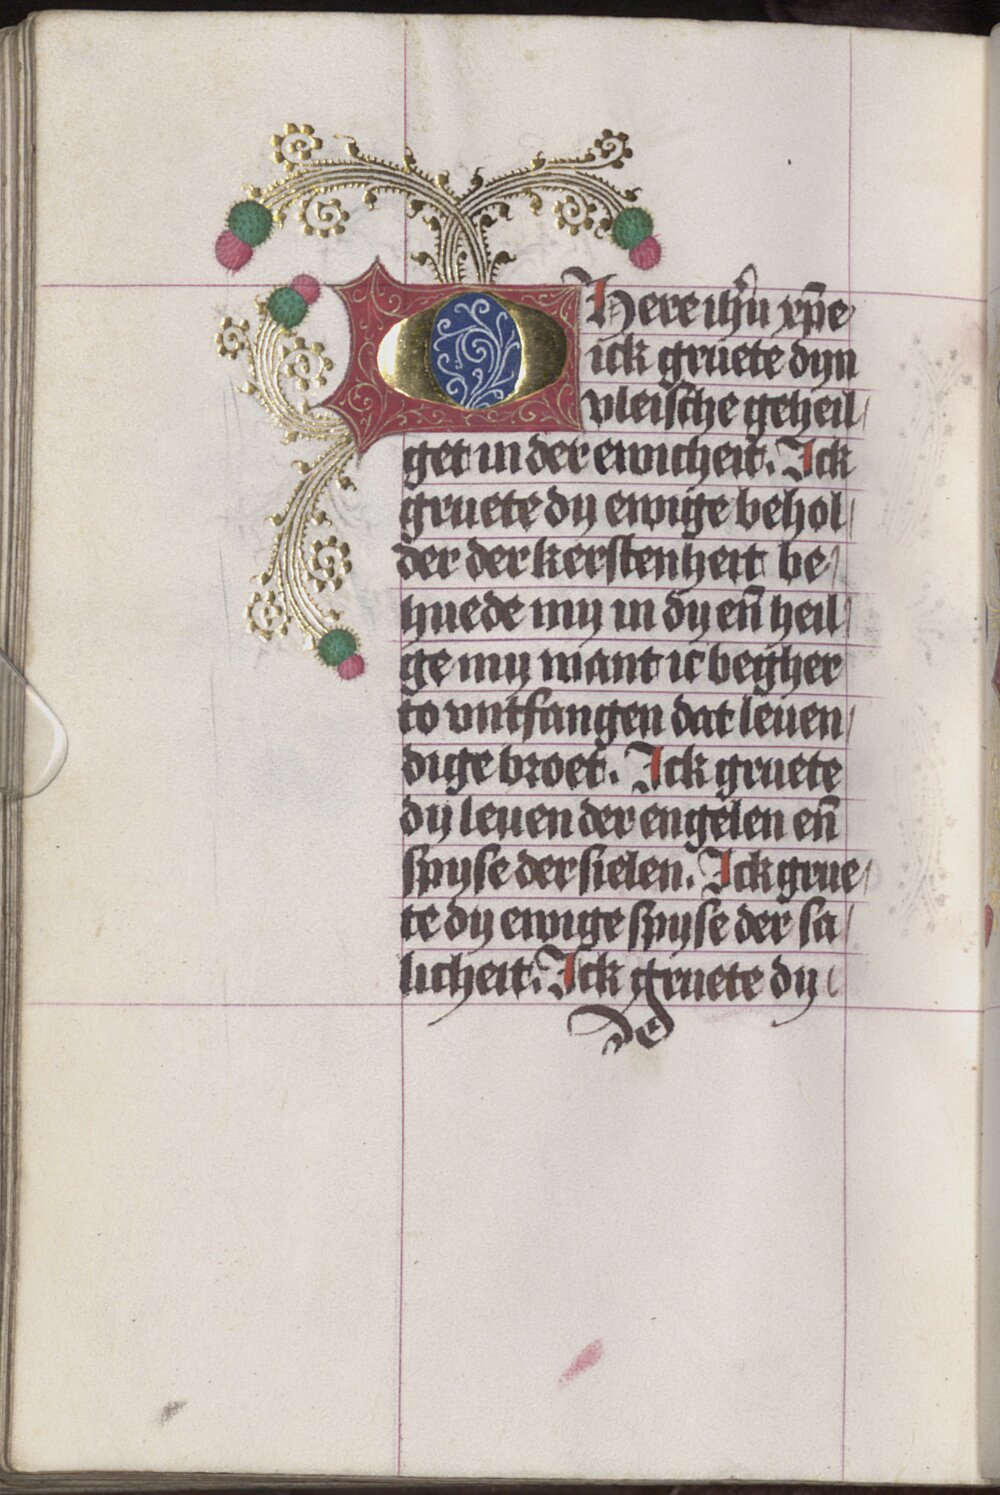 O Here ihu xpe
ick gruete dyn
vleische geheil
get in der ewicheit. Ick
gruete dy ewige behol
der der kerstenheit be
huede my in dy en̄ heil
ge my want ic begher
to vntfangen dat leuen
dige broet. Ick gruete
dy leuen der engelen en̄
spyse der sielen. Ick grue
te dy ewige spyse der sa
licheit. Ick gruete dy